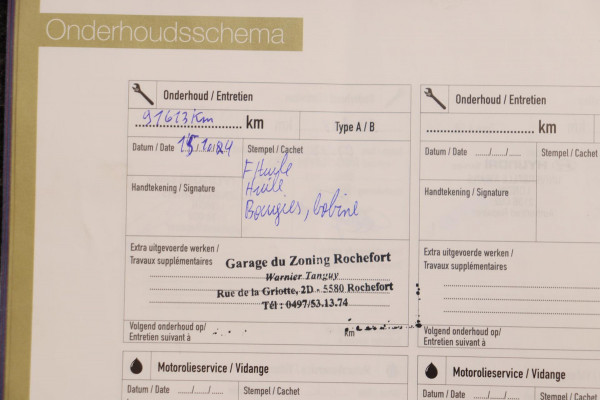 Onderhoudsschema
Onderhoud / Entretien
91613 Km
km
Type A / B
Datum / Date 15/10/24
Stempel / Cachet
F Huile
Huile
Bougies, bobine
Handtekening / Signature
Extra uitgevoerde werken /
Travaux supplémentaires
Garage du Zoning Rochefort
Warnier Tanguy
Rue de la Griotte, 2D - 5580 Rochefort
Tél : 0497/53.13.74
Volgend onderhoud op/
Entretien suivant à
Km
Motorolieservice / Vidange
Datum / Date ....../....../......
Stempel / Cachet
Onderhoud / Entretien
km
Datum / Date ....../....../......
Stempel / Cachet
Handtekening / Signature
Extra uitgevoerde werken /
Travaux supplémentaires
Volgend onderhoud op/
Entretien suivant à
Motorolieservice / Vidange
Datum / Date ....../....../......
Stempel / Cachet